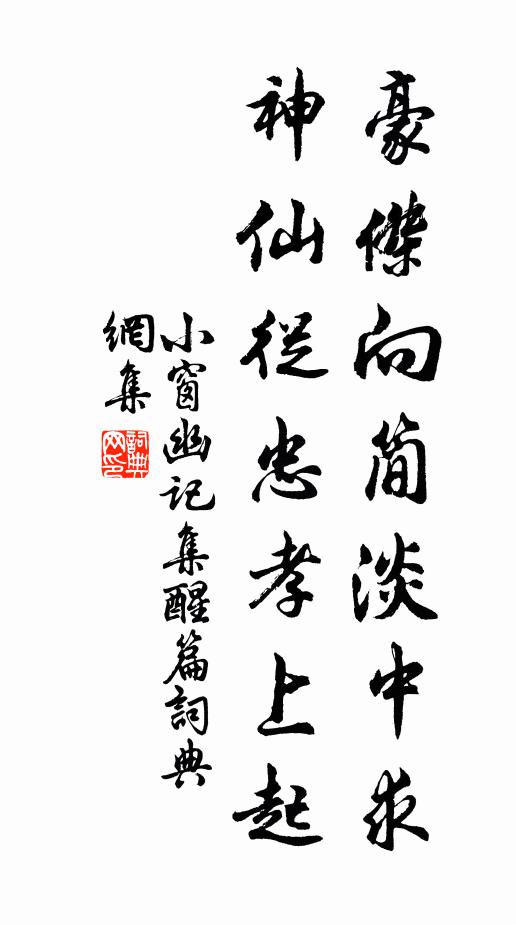 豪傑向簡淡中求
神仙從忠孝上起
小窗幽記集醒篇詞典
網集
詞典
网印